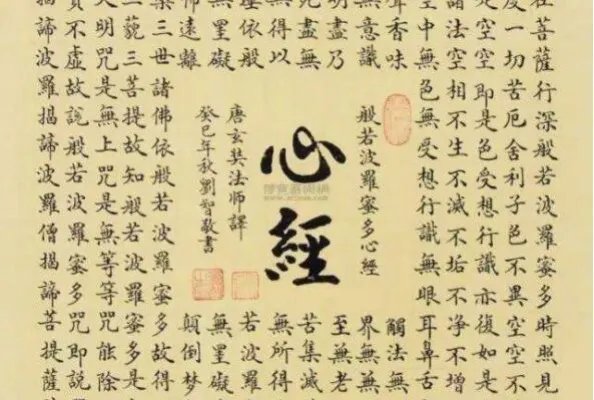 在菩薩行深般若波羅蜜多時照見
度一切苦厄舍利子色不異空空不
是空空即是色受想行識亦復如是
諸法空相不生不滅不垢不淨不增
空中無色無受想行識無眼耳鼻舌
聲香味
觸法無
無意識
界無無
明盡乃
至無老
死盡無
苦集滅
無得以
無所得
埵依般
若波羅
無罣礙
無罣礙
怖遠離
顛倒夢
般若波羅蜜多心經
心經
唐玄奘法師譯
癸巳年秋劉智敬書
槃三世諸佛依般若波羅蜜多故得
三藐三菩提故知般若波羅蜜多是
大明咒是無上咒是無等等咒能除
實不虛故說般若波羅蜜多咒即說
揭諦波羅揭諦波羅僧揭諦菩提薩